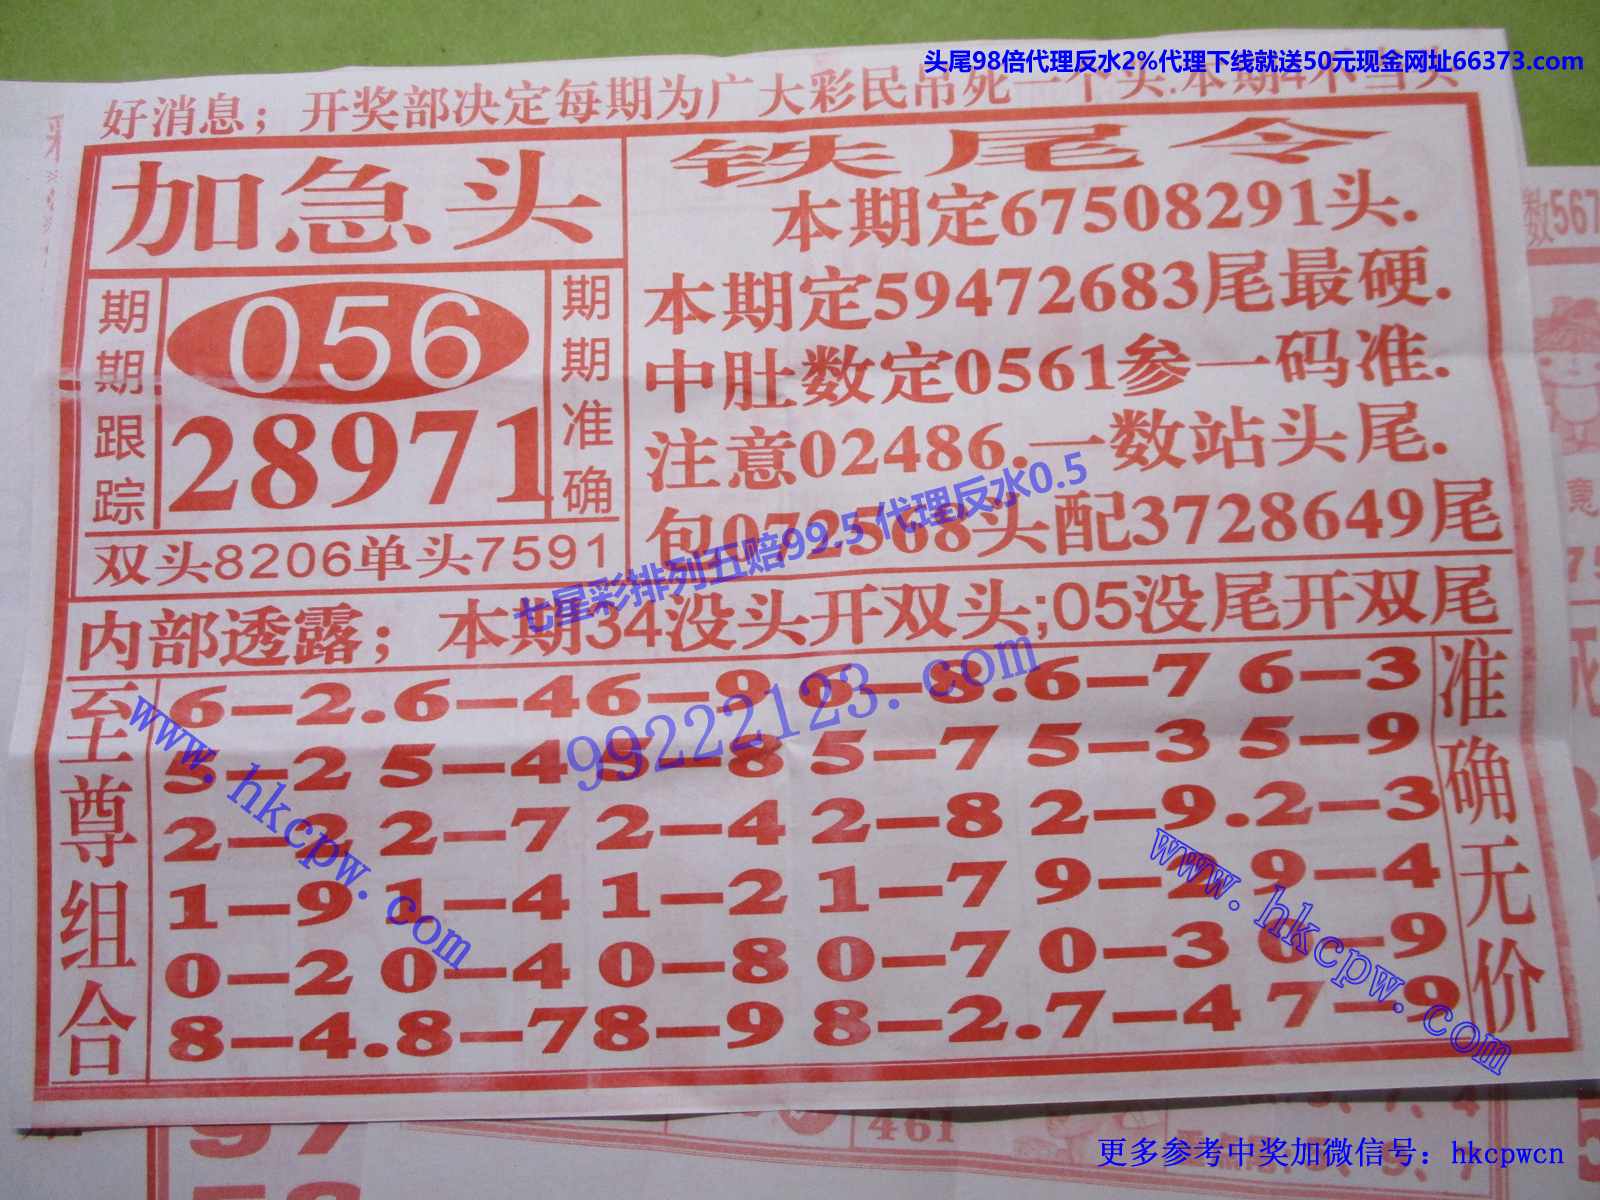 头尾98倍代理反水2%代理下线就送50元现金网址66373.com
好消息；开奖部决定每期为广大彩民吊死一个头.本期4不当头
加急头
期期跟踪
056
28971
期期准确
双头8206单头7591
铁尾令
本期定67508291头.
本期定59472683尾最硬.
中肚数定0561参一码准.
注意02486.一数站头尾.
包072568头配3728649尾
七星彩排列五赔99.5代理反水0.5
内部透露；本期34没头开双头;05没尾开双尾
99222123.com
至尊组合
6—2.6—4 6—9 6—8.6—7 6—3
5—2 5—4 5—8 5—7 5—3 5—9
2—2 2—7 2—4 2—8 2—9.2—3
1—9 1—4 1—2 1—7 9—2 9—4
0—2 0—4 0—8 0—7 0—3 0—9
8—4.8—7 8—9 8—2.7—4 7—9
准确无价
www.hkcpw.com
www.hkcpw.com
数567
461
更多参考中奖加微信号：hkcpwcn